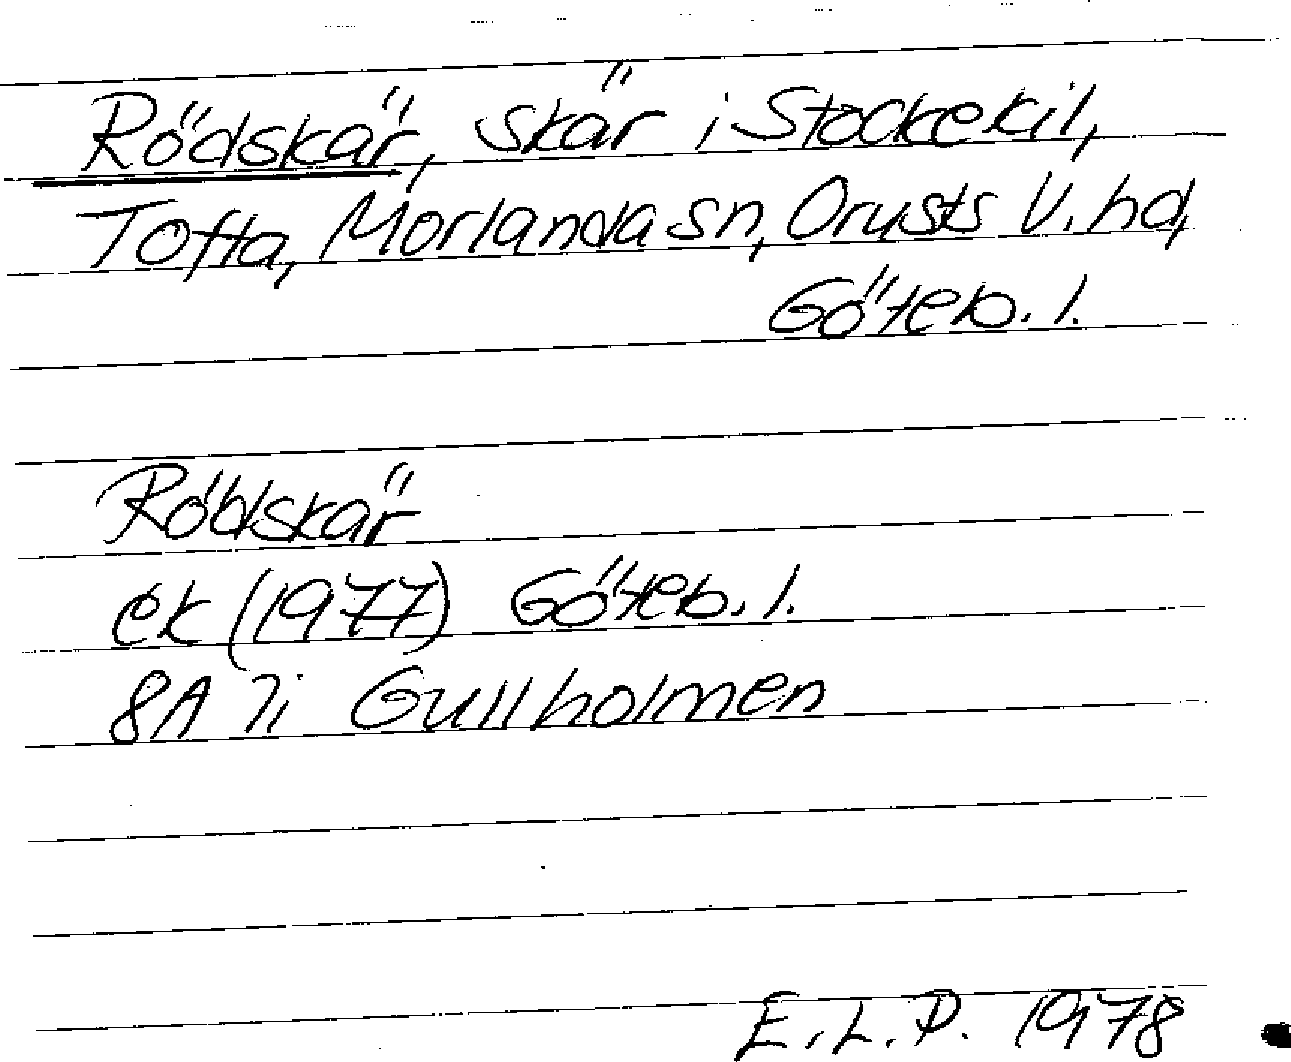 Rödskär, skär i Stockekil,
Tofta, Morlanda sn, Orusts V. hd,
Göteb. l.
Rödskär
ek (1977) Göteb. l.
8A 7i Gullholmen
E.L.P. 1978